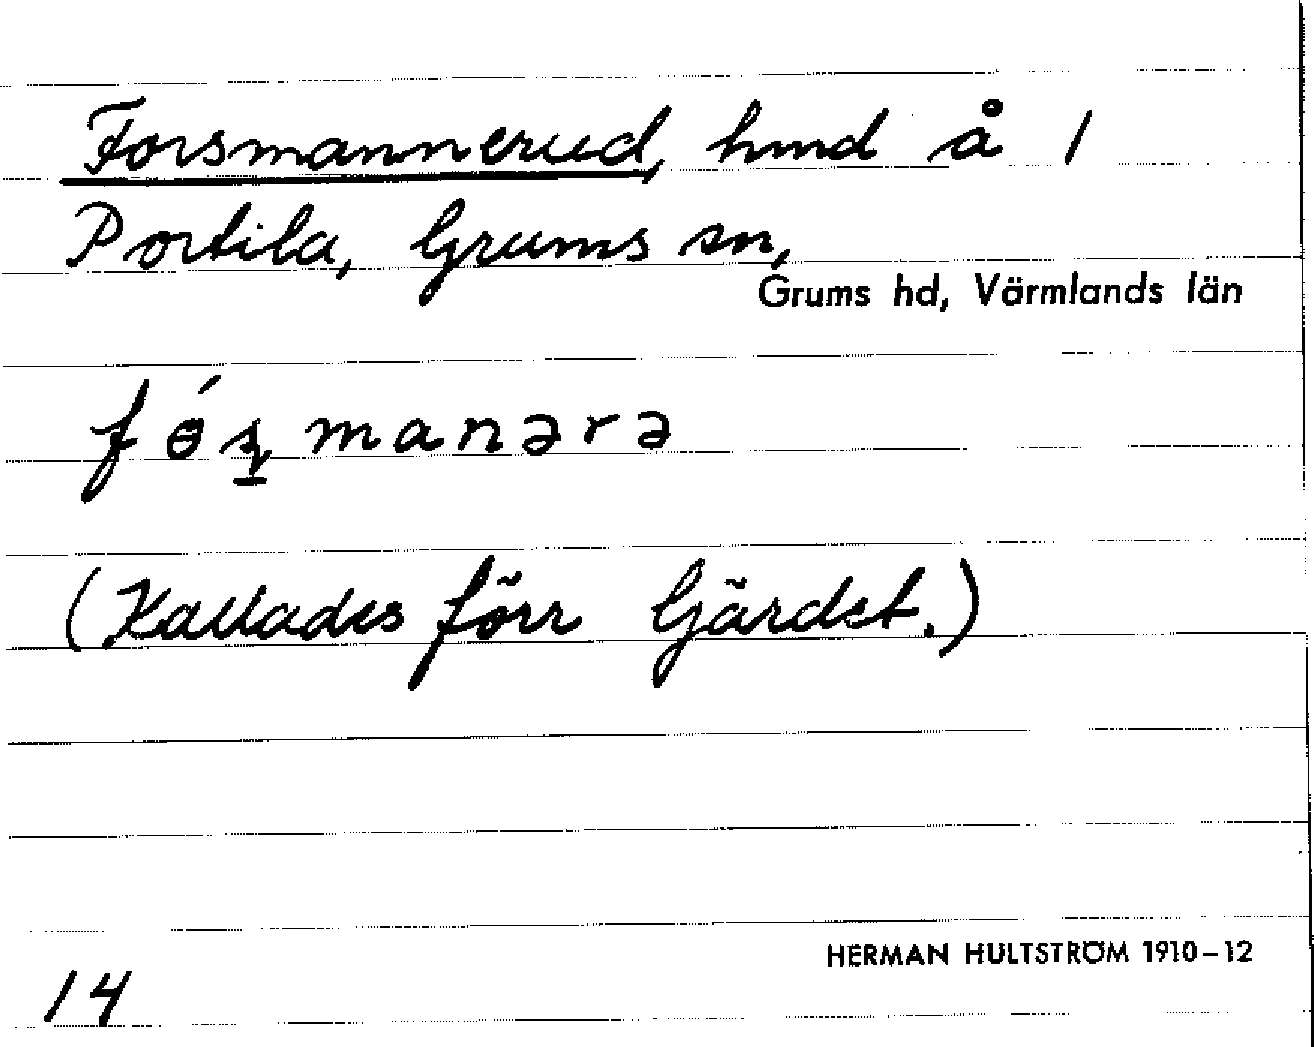 Forsmannerud, hmd å 1
Portila, Grums sn,
Grums hd, Värmlands län
fɵ́ʂmanəra
(Kallades förr Gärdet.)
HERMAN HULTSTRÖM 1910–12
14